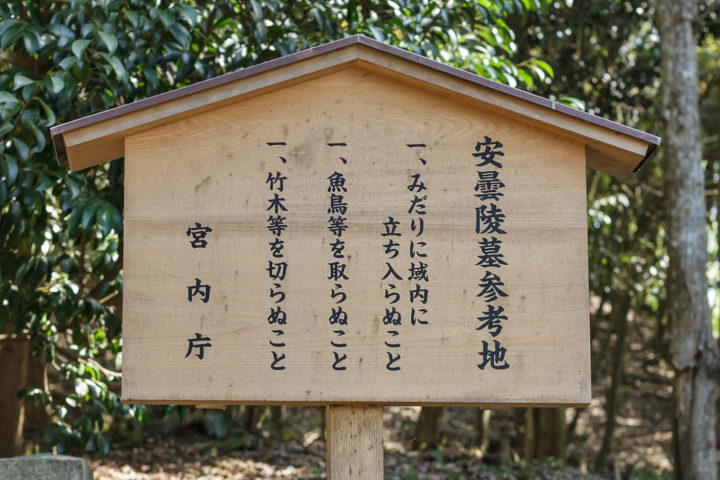 安曇陵墓参考地
一、みだりに域内に
立ち入らぬこと
一、魚鳥等を取らぬこと
一、竹木等を切らぬこと
宮内庁